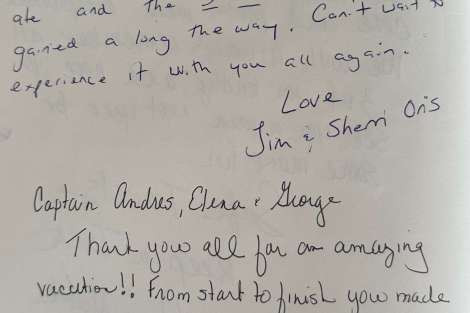 ate and the
gained a long the way. Can't wait to
experience it with you all again.
Love
Jim & Sherri Oris
Captain Andres, Elena & George
Thank you all for an amazing
vacation!! From start to finish you made